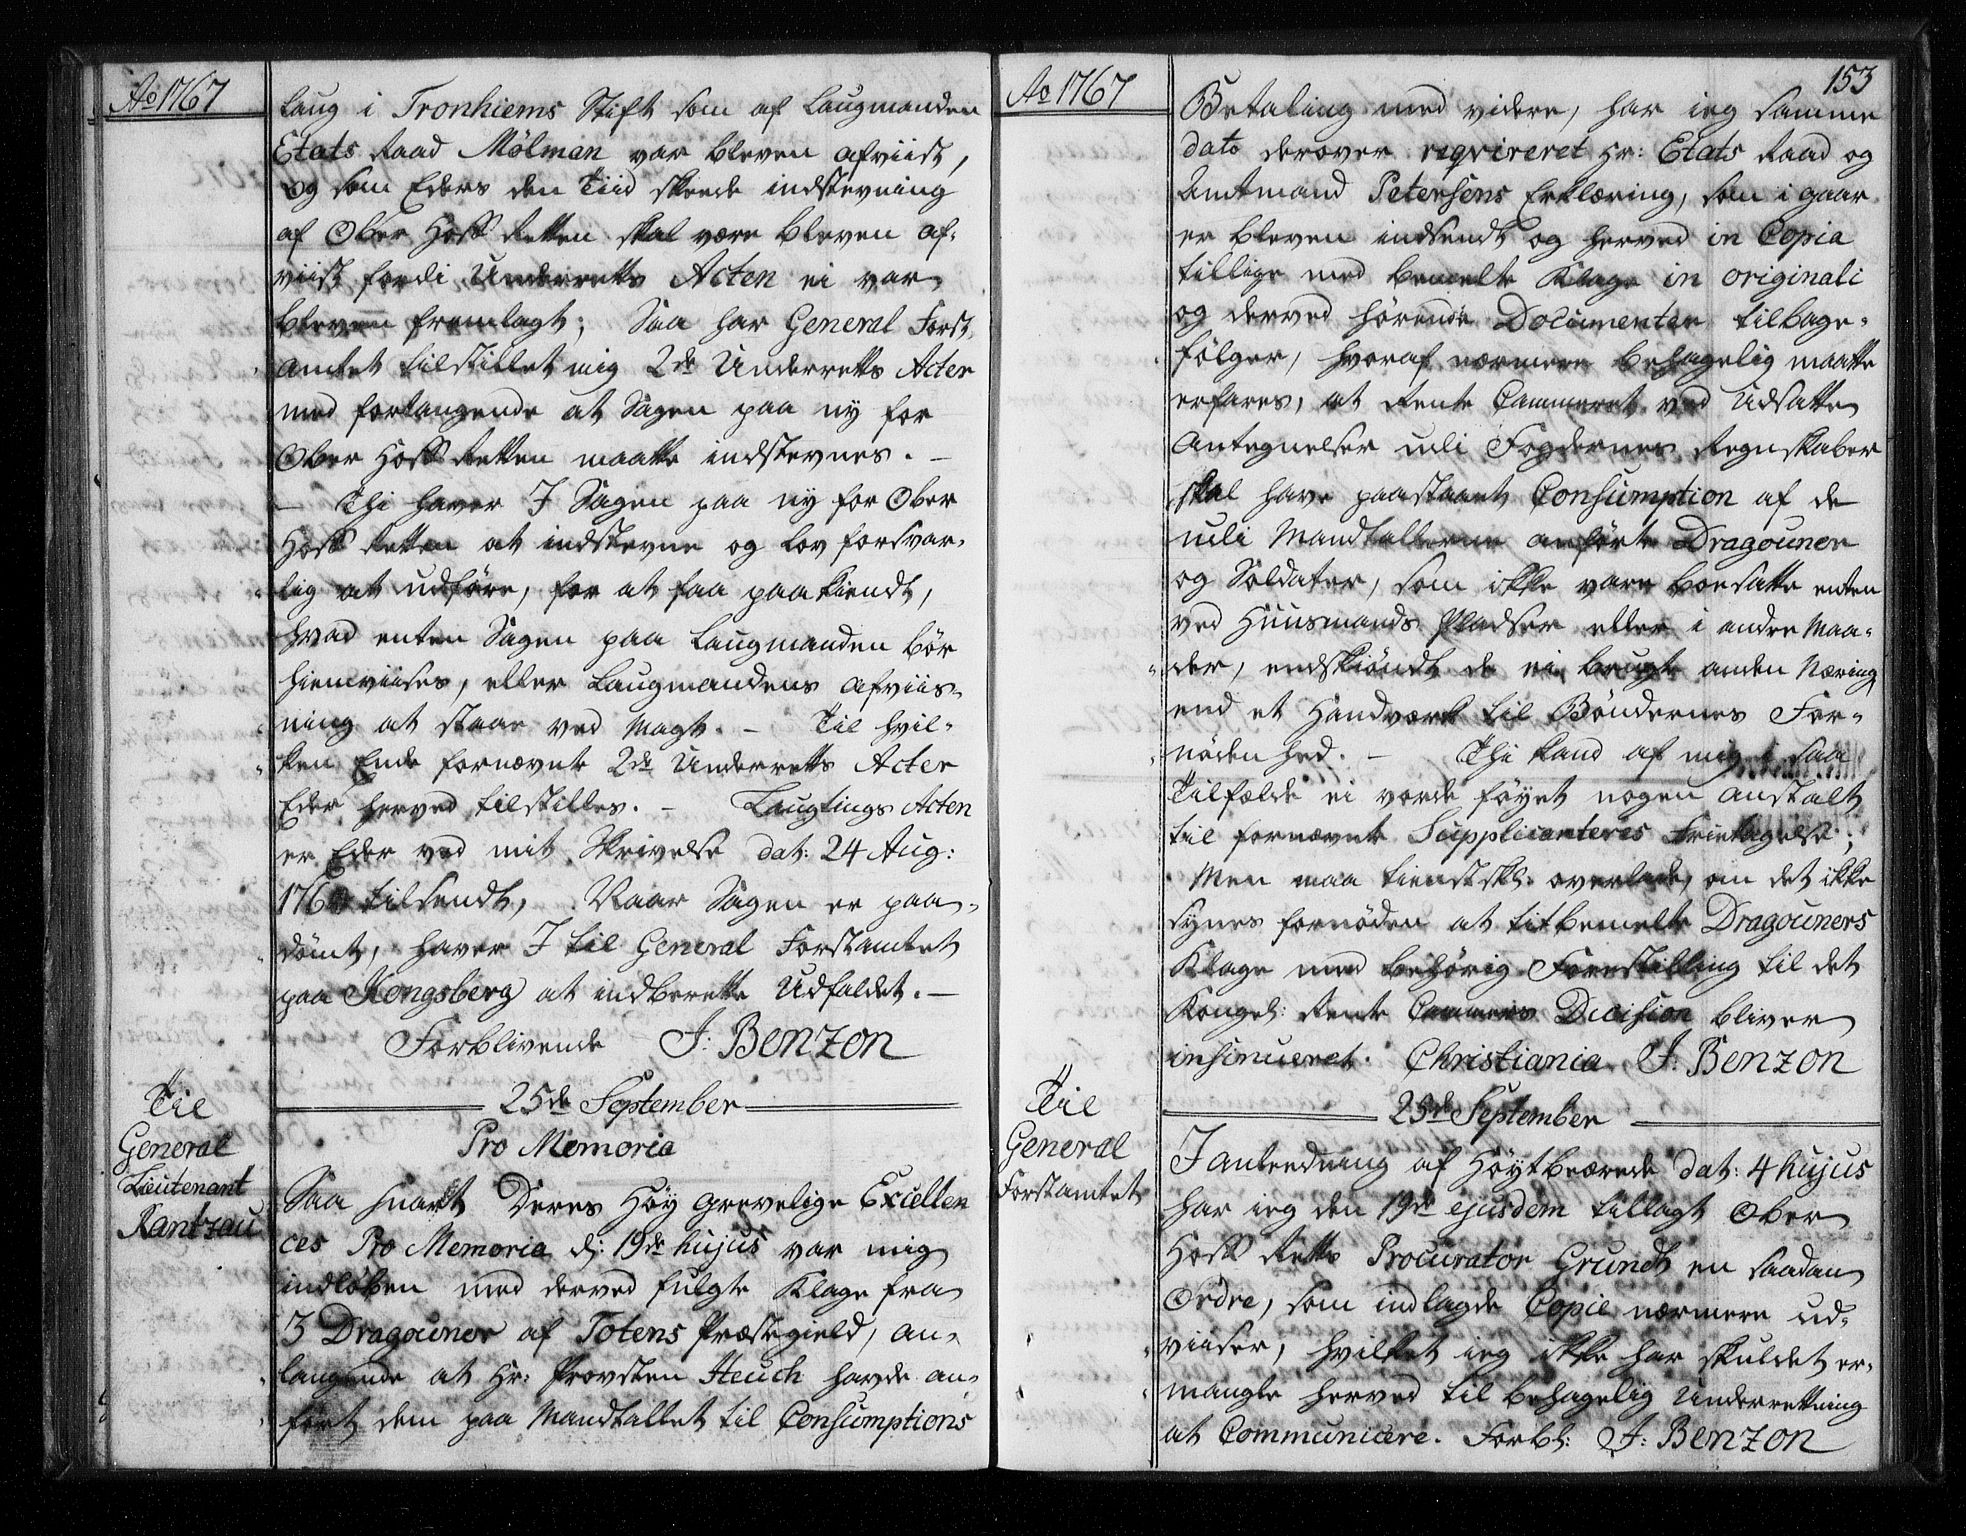 Ao 1767
laug i Tronhiems Stift som af Laugmanden
Etats Raad Mølman var bleven afviist,
og som Eders den Tiid skeede indstevning
af Ober Hoff Retten skal være bleven af-
viist fordi Underretts Acten ei var
bleven fremlagt; Saa har General Forst-
amtet tilstillet mig 2de Underretts Acter
med forlangende at Sagen paa ny for
Ober Hoff Retten maatte indstevnes. –
– Thi haver I Sagen paa ny for Ober
Hoff Retten at indstevne og lov forsvar-
lig at udføre, for at faa paakiendt,
hvad enten Sagen paa Laugmanden bør
hiemviises, eller Laugmandens afviis-
ning at staae ved Magt. – Til hvil-
ken Ende fornævnte 2de Underretts Acter
Eder herved tilstilles. – Laugtings Acten
er Eder ved mit Skrivelse dat: 24 Aug:
tilsendt, Naar Sagen er paa-
dømt, haver I til General Forstamtet
paa Kongsberg at indberette Udfaldet. –
Forblivende J: Benzon
25de September
Til
General
Lieutenant
Rantzau
Pro Memoria
Saa snart Deres Høy Grevelige Excellen
ces Pro Memoria d: 19de hujus var mig
indløben med derved fulgte Klage fra
3 Dragouner af Totens Præstegield, an-
langende at Hr: Provsten Heuch havde an-
ført dem paa Mandtallet til Consumptions
Ao 1767
153
Betaling med videre, har ieg samme
dato derover reqvireret Hr: Etats Raad og
Amtmand Petersens Erklæring, som i gaar
er bleven indsendt og herved in Copia
tillige med bemelte Klage in originali
og derved hørende Documenter tilbage-
følger, hvoraf nærmere behagelig maatte
erfares, at Rente Cammeret ved Udsatte
Antegnelser udi Fogdernes Regnskaber
skal have paastaaet Consumption af de
udi Mandtallerne anførte Dragouner
og Soldater, som ikke vare boesatte enten
ved Huusmands Pladser eller i andre Maa-
der, endskiøndt de ei brugte anden Næring
end et Handværk til Bøndernes For-
nødenhed. – Thi kand af mig i saa
Tilfælde ei vorde føyet nogen anstalt
til fornævnte Supplicanteres Frietagelse;
Men maa tienstskl: overlade, om det ikke
synes fornøden at titbemelte Dragouners
Klage med behørig Forestilling til det
Kongel: Rente Cammers Decision bliver
insinueret. Christiania J: Benzon
25de September
Til
General
Forstamtet
I anledning af Høytbeærede dat: 4 hujus
har ieg den 19de ejusdem tillagt Ober
Hoff Retts Procurator Grundt en saadan
Ordre, som indlagde Copie nærmere ud-
viiser, hvilket ieg ikke har skuldet er-
mangle herved til behagelig Underretning
at Communicere. Forbl: J: Benzon